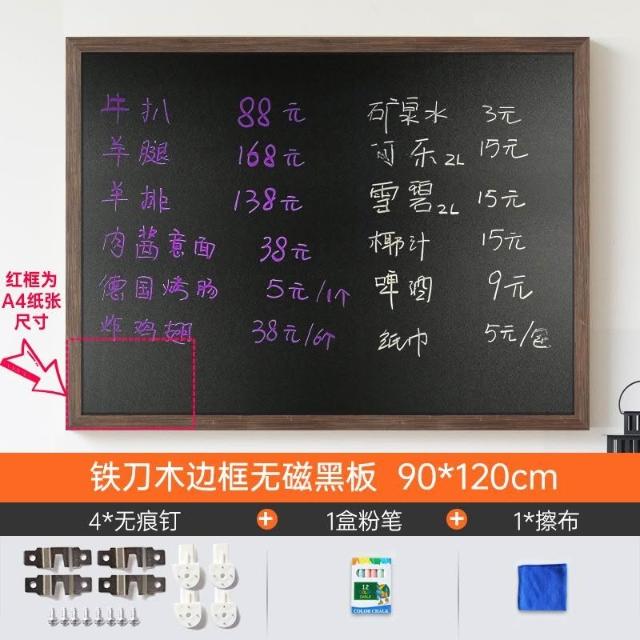 牛扒 88元
羊腿 168元
羊排 138元
肉酱意面 38元
德国烤肠 5元/1个
炸鸡翅 38元/6个
矿泉水 3元
可乐2L 15元
雪碧2L 15元
椰汁 15元
啤酒 9元
纸巾 5元/包
红框为
A4纸张
尺寸
铁刀木边框无磁黑板 90*120cm
4*无痕钉 + 1盒粉笔 + 1*擦布
12
COLOR CHALK